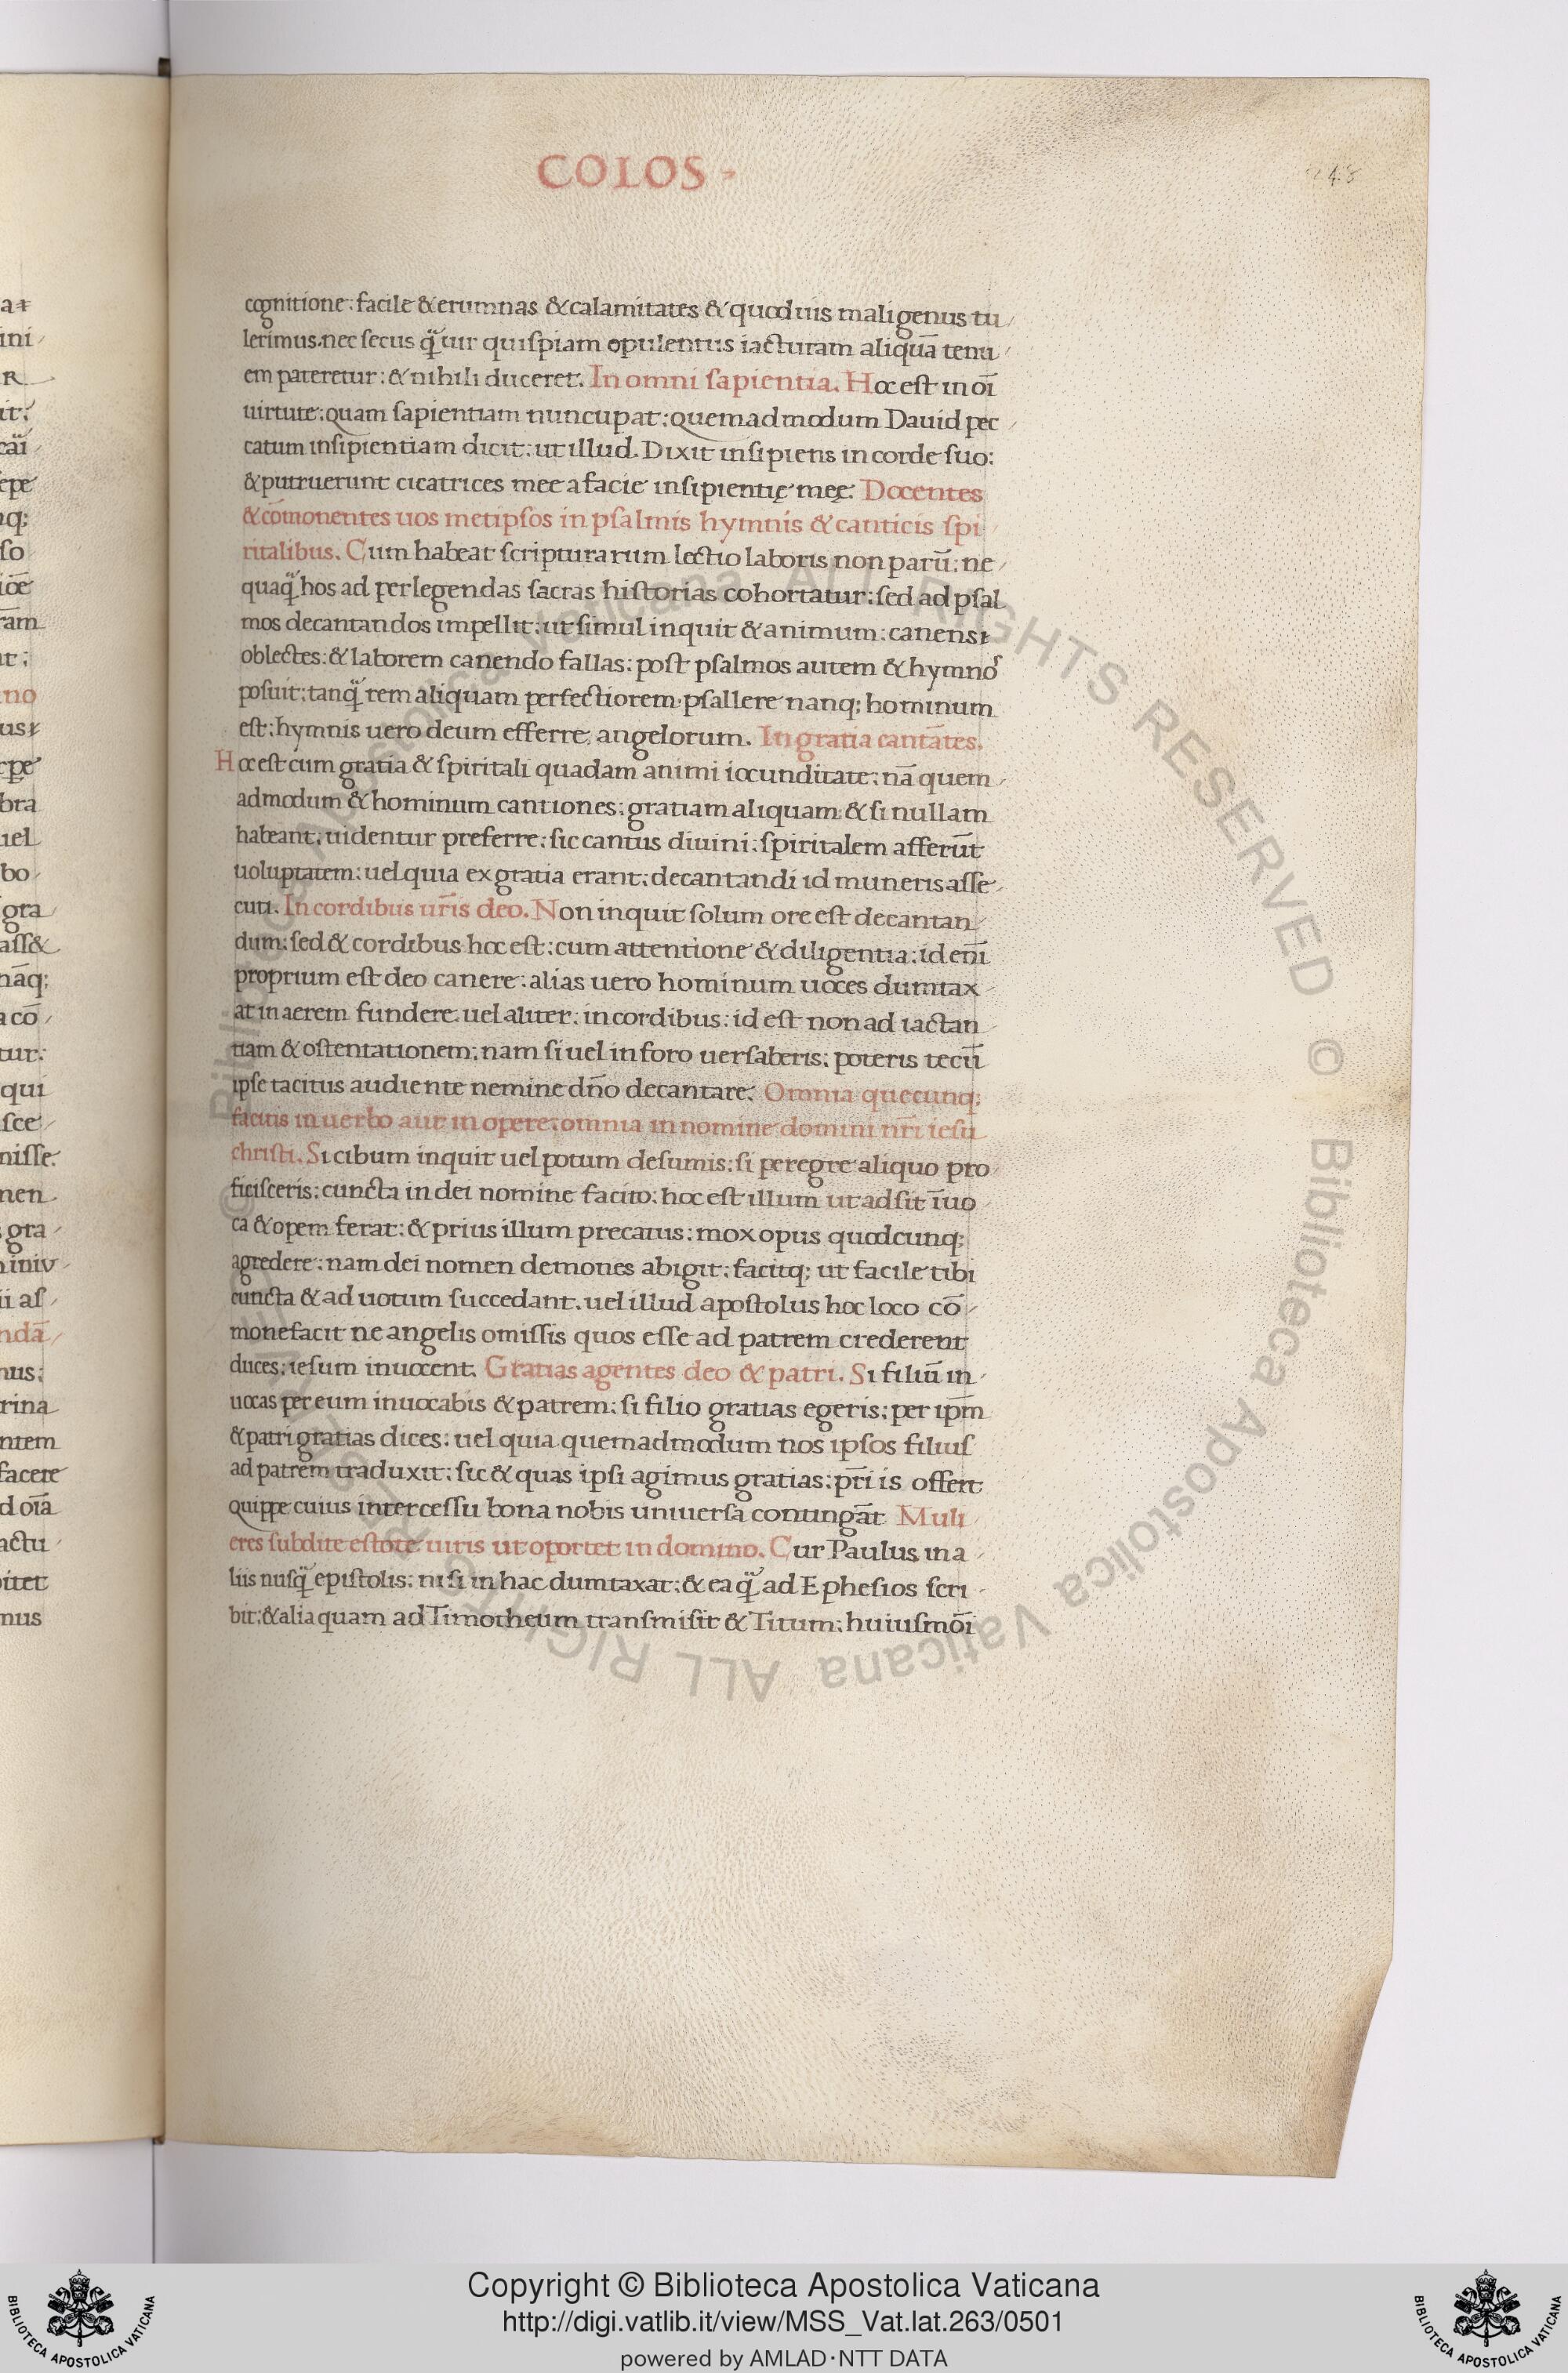 COLOS
248
cognitione: facile & erumnas & calamitates & quoduis mali genus tu
lerimus. nec secus q̈̃ uir quispiam opulentus iacturam aliquā tenu
em pateretur: & nihili duceret. In omni sapientia. Hoc est in oī
uirtute: quam sapientiam nuncupat: quemadmodum Dauid pec
catum insipientiam dicit: ut illud. Dixit insipiens in corde suo:
& putruerunt cicatrices mee a facie insipientię meę. Docentes
& cōmonentes uos metipsos in psalmis hymnis & canticis spi
ritalibus. Cum habeat scripturarum lectio laboris non parū: ne
quaq̈̃ hos ad perlegendas sacras historias cohortatur: sed ad psal
mos decantandos impellit: ut simul inquit & animum: canens
oblectes: & laborem canendo fallas: post psalmos autem & hymnos
posuit: tanq̈̃ rem aliquam perfectiorem. psallere nanq; hominum
est: hymnis uero deum efferre, angelorum. In gratia cantātes.
Hoc est cum gratia & spiritali quadam animi iocunditate: nā quem
admodum & hominum cantiones: gratiam aliquam & si nullam
habeant, uidentur preferre: sic cantus diuini: spiritalem afferūt
uoluptatem: uel quia ex gratia erant: decantandi id muneris asse
cuti. In cordibus ur̄is deo. Non inquit solum ore est decantan
dum: sed & cordibus hoc est: cum attentione & diligentia: id enī
proprium est deo canere: alias uero hominum uoces dumtax
at in aerem fundere. uel aliter: in cordibus: id est non ad iactan
tiam & ostentationem: nam si uel in foro uersaberis: poteris tecū
ipse tacitus audiente nemine dn̄o decantare. Omnia quecunq;
facitis in uerbo aut in opere: omnia in nomine domini nr̄i iesu
christi. Si cibum inquit uel potum desumis: si peregre aliquo pro
ficisceris: cuncta in dei nomine facito: hoc est illum ut adsit īuo
ca & opem ferat: & prius illum precatus: mox opus quodcunq;
agredere: nam dei nomen demones abigit: facitq; ut facile tibi
cuncta & ad uotum succedant. uel illud apostolus hoc loco cō
monefacit ne angelis omissis quos esse ad patrem crederent
duces: iesum inuocent. Gratias agentes deo & patri. Si filiū in
uocas per eum inuocabis & patrem: si filio gratias egeris: per ip̄m
& patri gratias dices: uel quia quemadmodum nos ipsos filius
ad patrem traduxit: sic & quas ipsi agimus gratias: pr̄i is offert
quippe cuius intercessu bona nobis uniuersa contingāt Muli
eres subdite estote uiris ut oportet in domino. Cur Paulus in a
liis nusq̈̃ epistolis: nisi in hac dumtaxat: & ea q̈̃ ad Ephesios scri
bit: & alia quam ad Timotheum transmisit & Titum: huiusmōi
© Biblioteca Apostolica Vaticana ALL RIGHTS RESERVED © Biblioteca Apostolica Vaticana ALL RIGHTS RESERVED
Copyright © Biblioteca Apostolica Vaticana
http://digi.vatlib.it/view/MSS_Vat.lat.263/0501
powered by AMLAD·NTT DATA
BIBLIOTECA APOSTOLICA VATICANA
BIBLIOTECA APOSTOLICA VATICANA